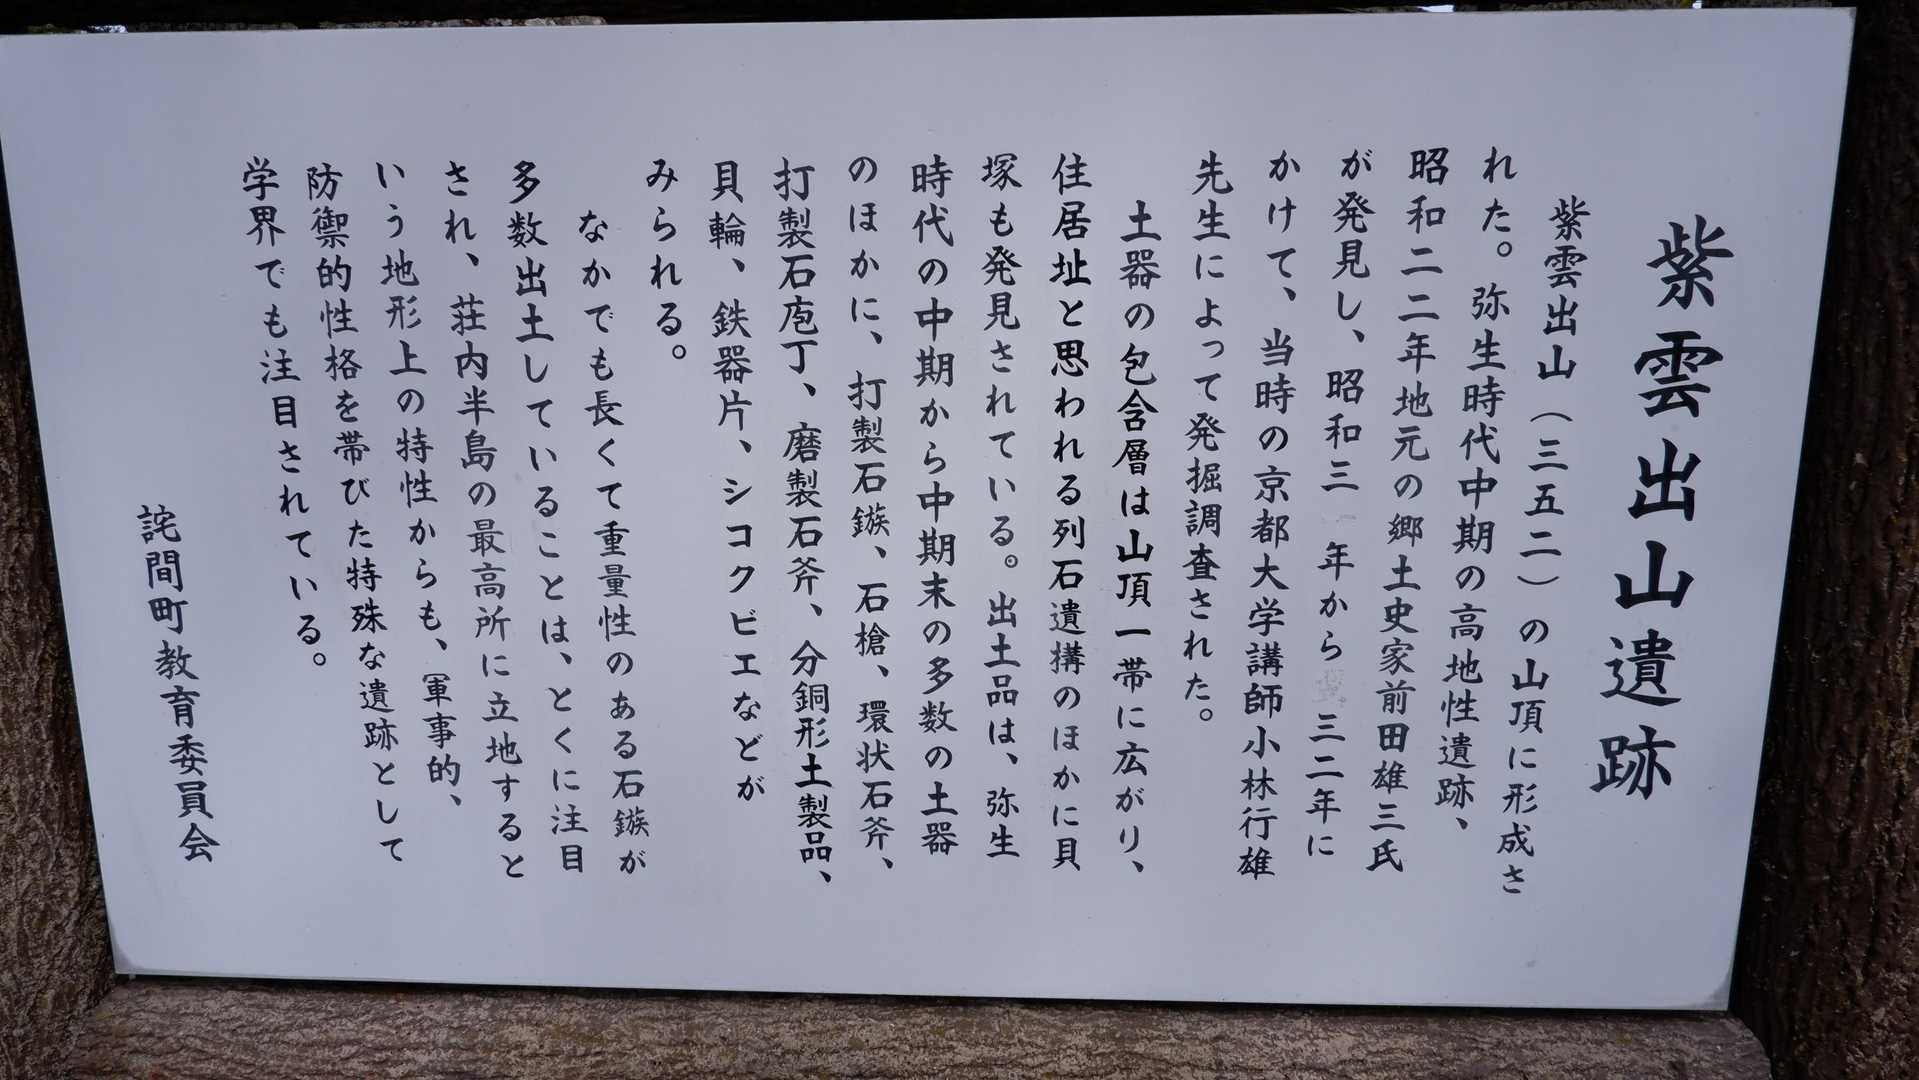 紫雲出山遺跡
紫雲出山（三五二）の山頂に形成さ
れた。弥生時代中期の高地性遺跡、
昭和二二年地元の郷土史家前田雄三氏
が発見し、昭和三 年から 三二年に
かけて、当時の京都大学講師小林行雄
先生によって発掘調査された。
土器の包含層は山頂一帯に広がり、
住居址と思われる列石遺構のほかに貝
塚も発見されている。出土品は、弥生
時代の中期から中期末の多数の土器
のほかに、打製石鏃、石槍、環状石斧、
打製石庖丁、磨製石斧、分銅形土製品、
貝輪、鉄器片、シコクビエなどが
みられる。
なかでも長くて重量性のある石鏃が
多数出土していることは、とくに注目
され、荘内半島の最高所に立地すると
いう地形上の特性からも、軍事的、
防禦的性格を帯びた特殊な遺跡として
学界でも注目されている。
詫間町教育委員会